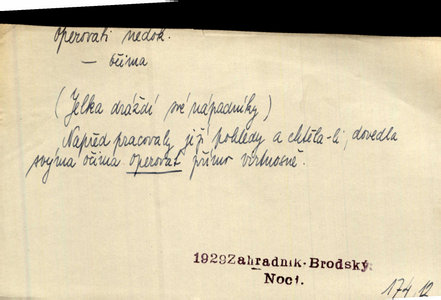 Operovati nedok.
— očima
(Jelka dráždí své nápadníky)
Napřed pracovaly její pohledy a chtěla-li, dovedla
svýma očima operovat přímo virtuosně.
1929 Zahradník-Brodský
Noci.
174 12